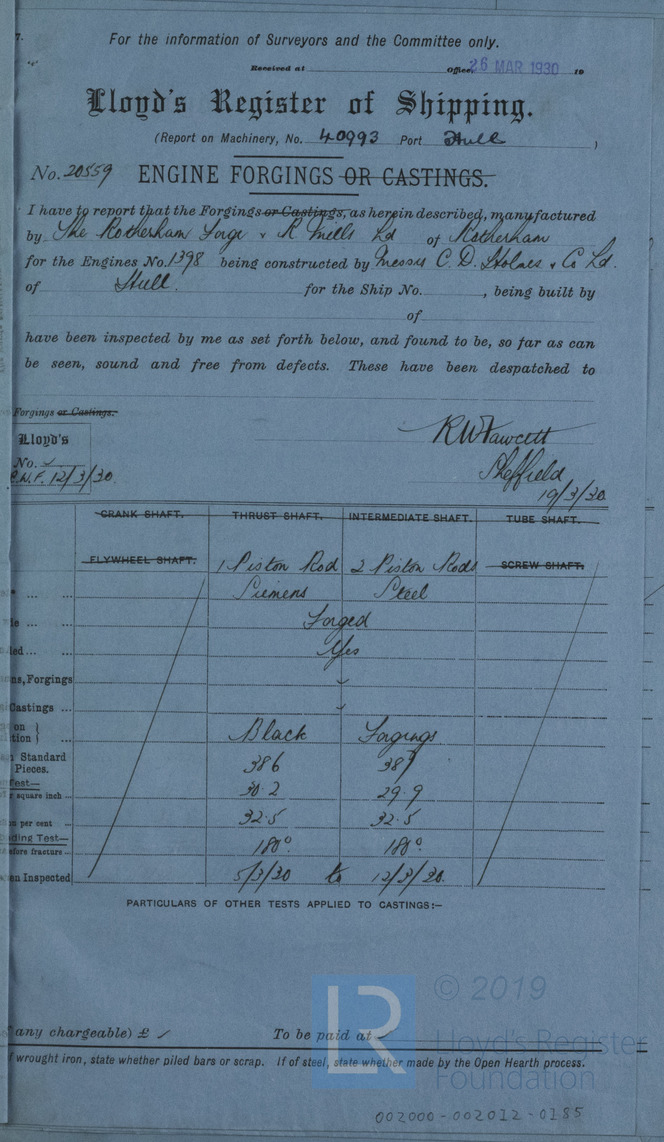 7.
For the information of Surveyors and the Committee only.
Received at Office 26 MAR 1930 19
Lloyd's Register of Shipping.
(Report on Machinery, No. 40993 Port Hull )
No. 20559 ENGINE FORGINGS OR CASTINGS.
I have to report that the Forgings or Castings, as herein described, manufactured
by The Rotherham Forge & R. Mills Ld of Rotherham
for the Engines No. 1398 being constructed by Messrs C. D. Holmes & Co Ld.
of Hull. for the Ship No. , being built by
of
have been inspected by me as set forth below, and found to be, so far as can
be seen, sound and free from defects. These have been despatched to
Forgings or Castings.
R W Fawcett
Lloyd's
No.
R.W.F. 12/3/30.
Sheffield
19/3/30
CRANK SHAFT. THRUST SHAFT. INTERMEDIATE SHAFT. TUBE SHAFT.
FLYWHEEL SHAFT. 1 Piston Rod 2 Piston Rods SCREW SHAFT.
Siemens Steel
Forged
Yes
ns, Forgings
Castings ...
on
tion Black Forgings
Standard
Pieces. 386 387
Test—
r square inch ... 30.2 29.9
on per cent ... 32.5 32.5
ding Test—
efore fracture ... 180° 180°
en Inspected 5/3/30 to 12/3/30.
PARTICULARS OF OTHER TESTS APPLIED TO CASTINGS:–
any chargeable) £ To be paid at
f wrought iron, state whether piled bars or scrap. If of steel, state whether made by the Open Hearth process.
LR
© 2019
Lloyd's Register
Foundation
002000-002012-0185